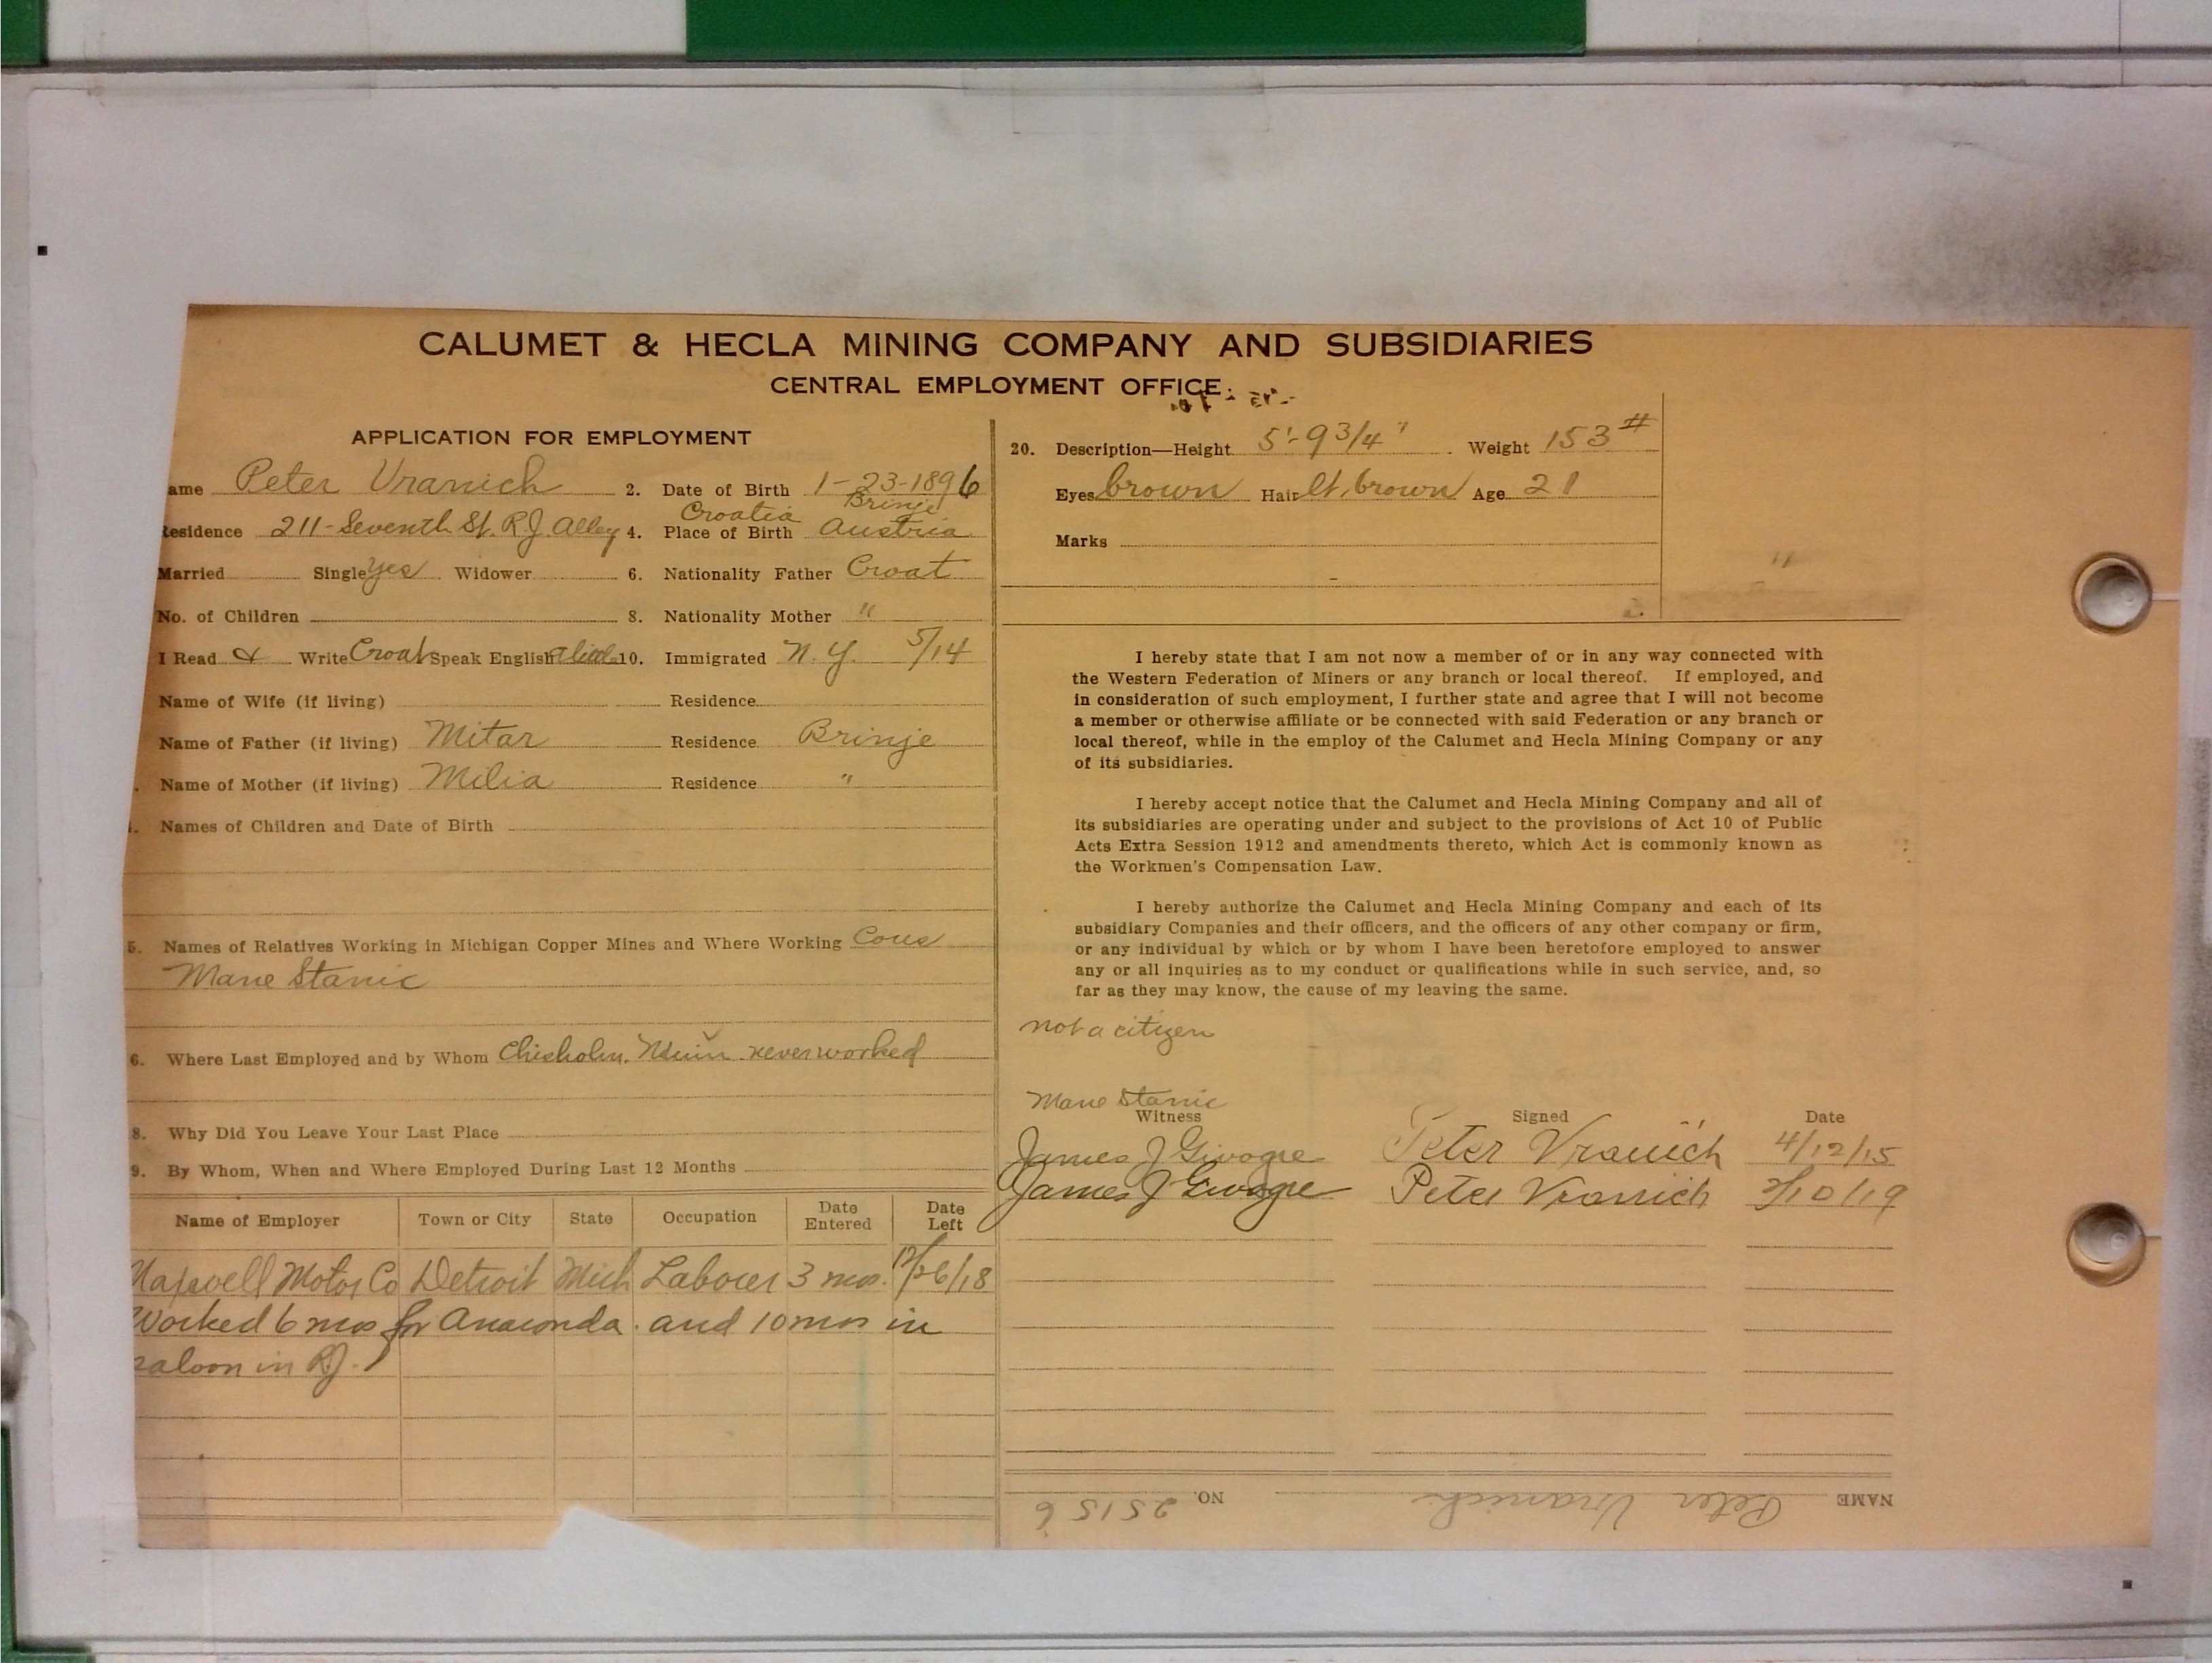 CALUMET & HECLA MINING COMPANY AND SUBSIDIARIES
CENTRAL EMPLOYMENT OFFICE
APPLICATION FOR EMPLOYMENT
ame Peter Vranich 2. Date of Birth 1-23-1896
Croatia Brinje
Residence 211-Seventh St. R.J. Alley 4. Place of Birth Austria
Married Single Yes Widower 6. Nationality Father Croat
No. of Children 8. Nationality Mother "
I Read & Write Croat Speak English 10. Immigrated N.Y. 5/14
Name of Wife (if living) Residence
Name of Father (if living) Mitar Residence Brinje
Name of Mother (if living) Milia Residence "
Names of Children and Date of Birth
5. Names of Relatives Working in Michigan Copper Mines and Where Working Cous
Mane Stanic
6. Where Last Employed and by Whom Chisholm, Minn never worked
8. Why Did You Leave Your Last Place
9. By Whom, When and Where Employed During Last 12 Months
Name of Employer Town or City State Occupation Date Entered Date Left
Maxwell Motor Co Detroit Mich Laborer 3 mos. 12/26/18
Worked 6 mos for Anaconda. and 10 mos in
saloon in R.J.
20. Description—Height 5'-9 3/4" Weight 153#
Eyes brown Hair lt. brown Age 21
Marks
I hereby state that I am not now a member of or in any way connected with
the Western Federation of Miners or any branch or local thereof. If employed, and
in consideration of such employment, I further state and agree that I will not become
a member or otherwise affiliate or be connected with said Federation or any branch or
local thereof, while in the employ of the Calumet and Hecla Mining Company or any
of its subsidiaries.
I hereby accept notice that the Calumet and Hecla Mining Company and all of
its subsidiaries are operating under and subject to the provisions of Act 10 of Public
Acts Extra Session 1912 and amendments thereto, which Act is commonly known as
the Workmen's Compensation Law.
I hereby authorize the Calumet and Hecla Mining Company and each of its
subsidiary Companies and their officers, and the officers of any other company or firm,
or any individual by which or by whom I have been heretofore employed to answer
any or all inquiries as to my conduct or qualifications while in such service, and, so
far as they may know, the cause of my leaving the same.
not a citizen
Mane Stanic
Witness Signed Date
James J Peter Vranich 4/12/15
James J Peter Vranich 2/10/19
NAME Peter Vranich NO. 25156